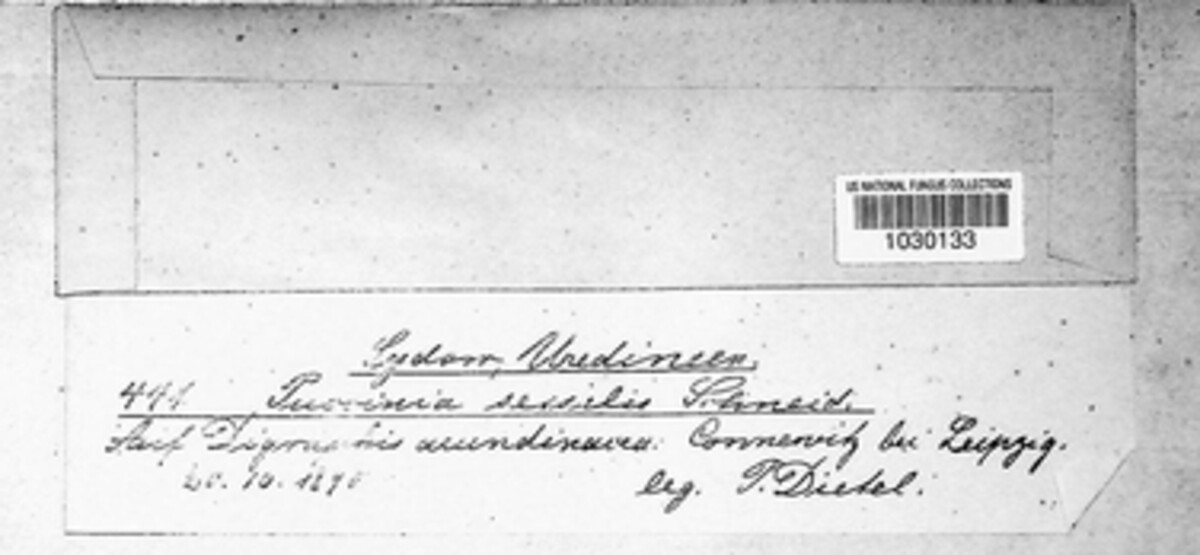 US NATIONAL FUNGUS COLLECTIONS
1030133
Sydow, Uredineen.
Puccinia sessilis Schneid.
Auf Digraphis arundinacea. Connewitz bei Leipzig.
10. 1890 leg. P. Dietel.